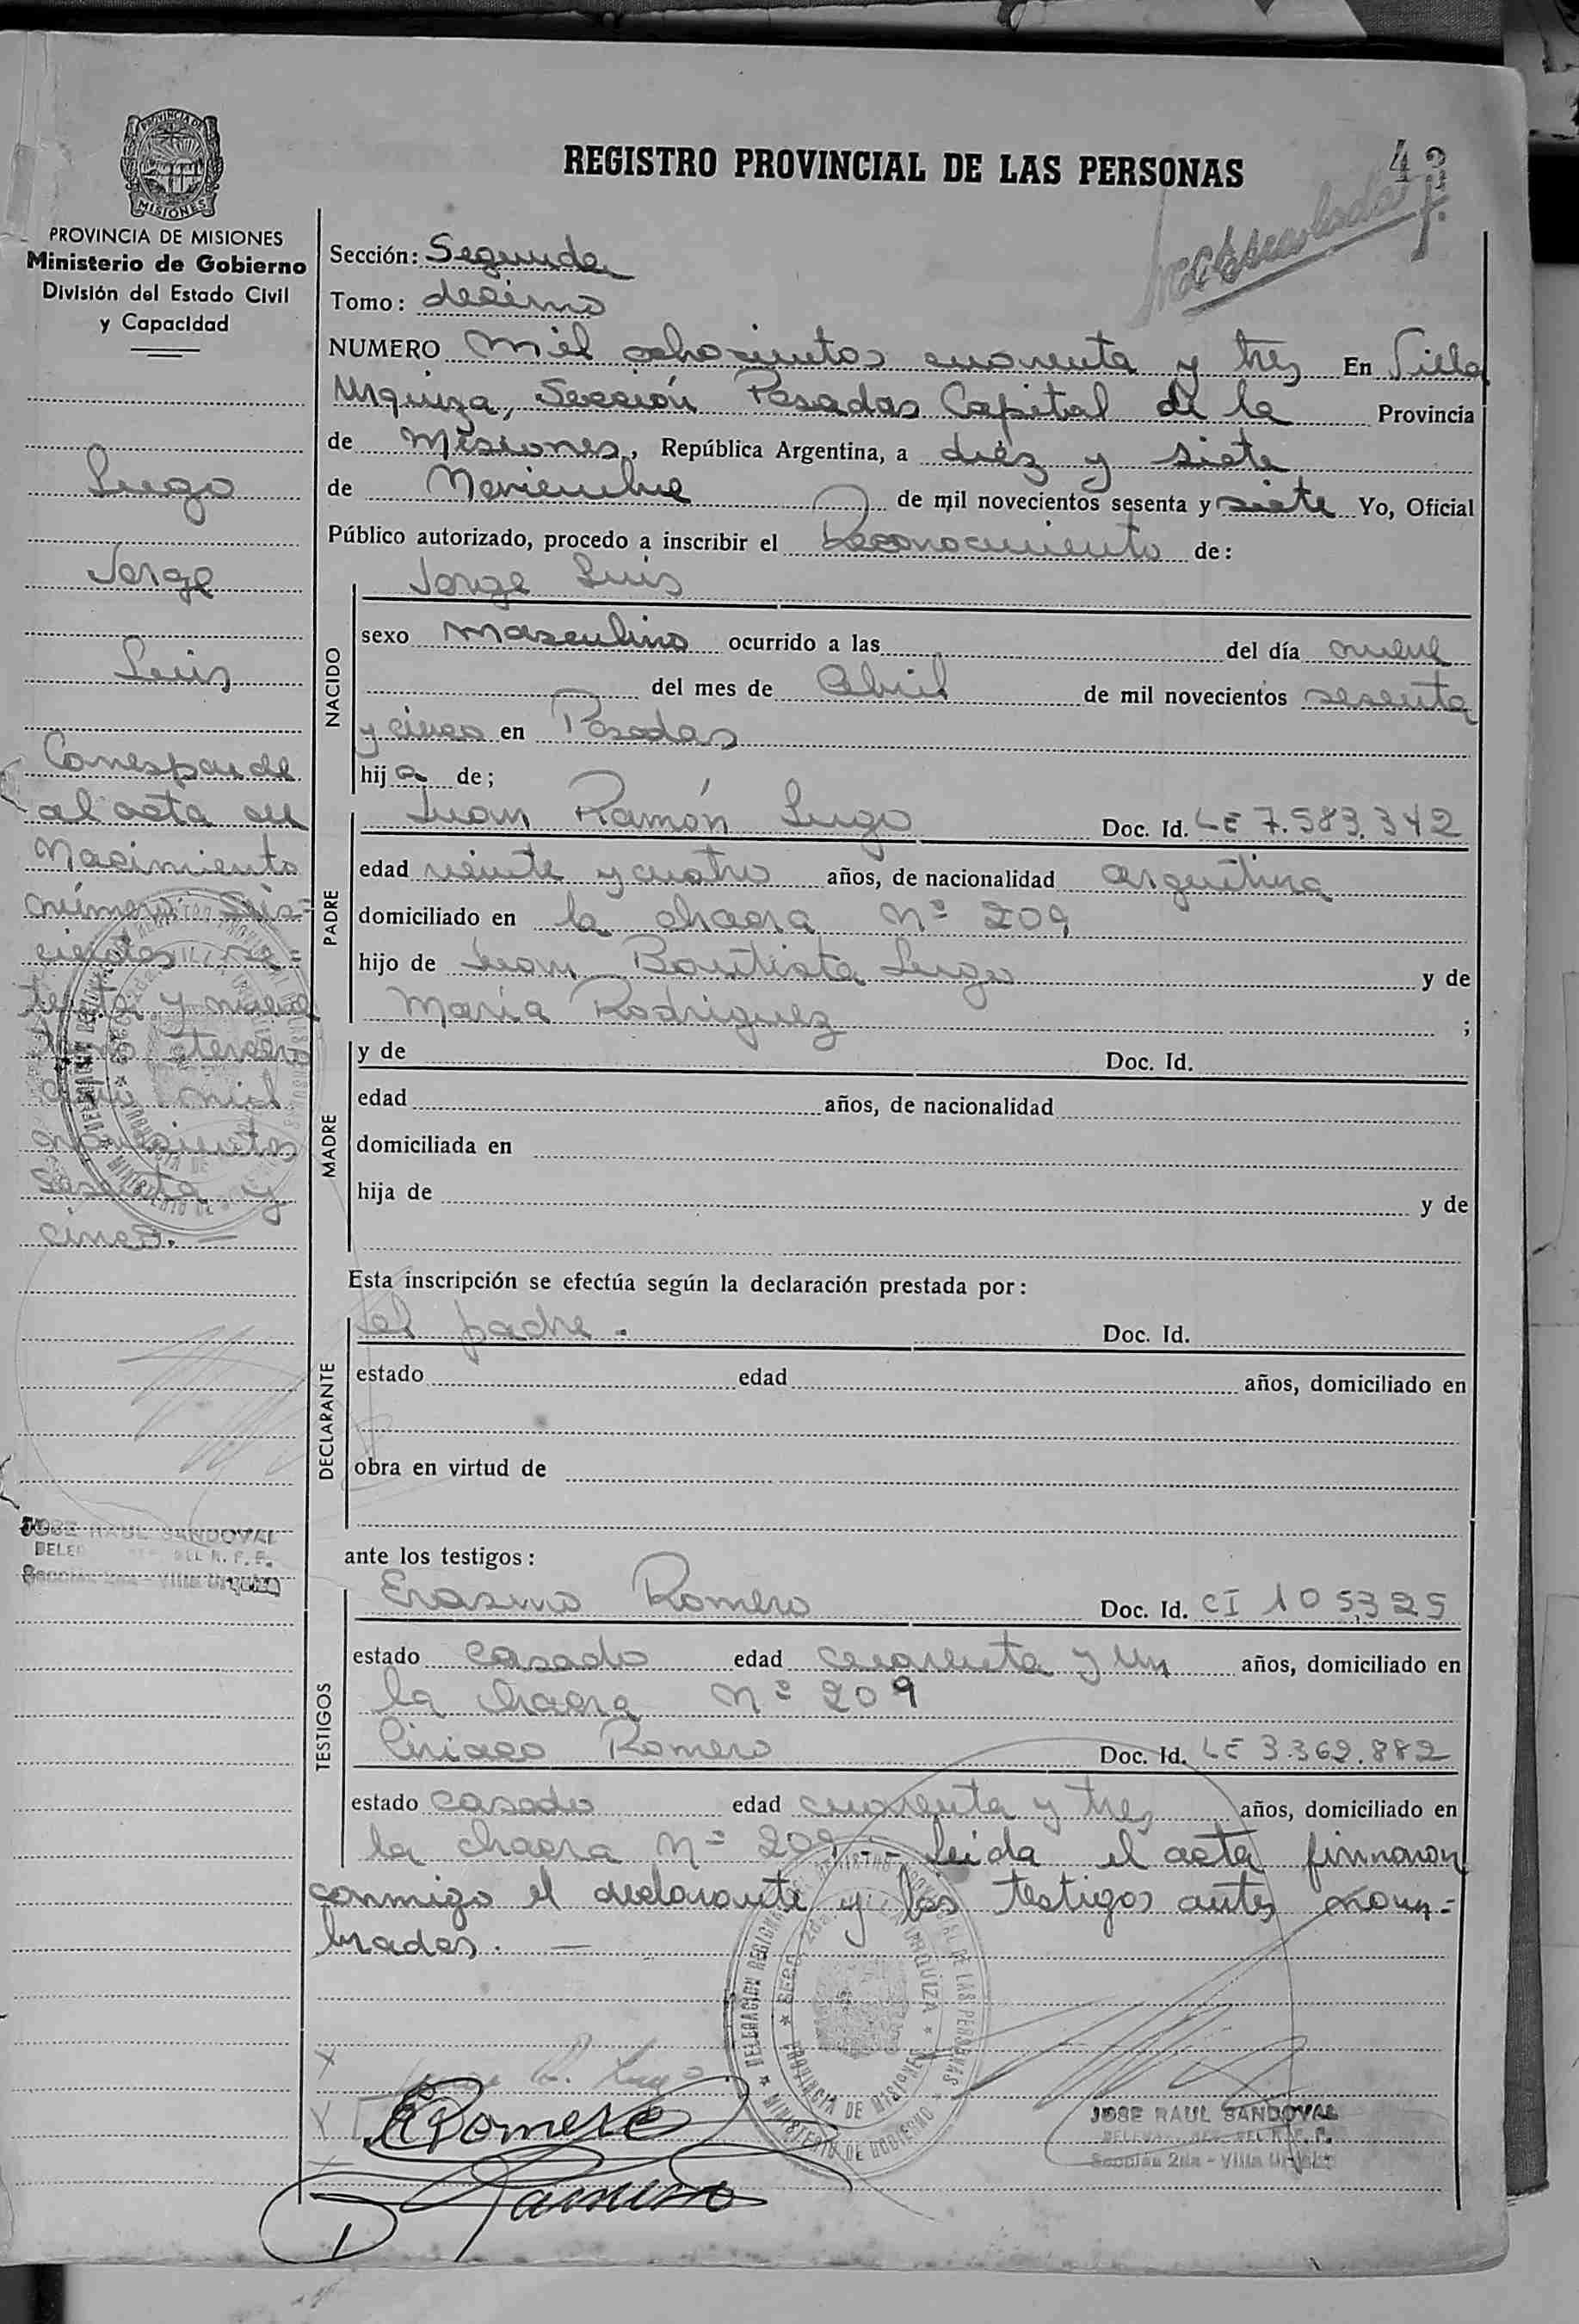 PROVINCIA DE MISIONES
REGISTRO PROVINCIAL DE LAS PERSONAS
43
PROVINCIA DE MISIONES
Ministerio de Gobierno
División del Estado Civil
y Capacidad
Lugo
Jorge
Luis
Corresponde
al acta de
Nacimiento
número Seis=
cientos se=
tenta y nueve
tomo tercero
año mil
novecientos
sesenta y
cinco. —
JOSE RAUL SANDOVAL
DEL R. P. P.
Sección 2da - Villa Urquiza
Sección: Segunda
Tomo: decimo
NUMERO mil ochocientos cuarenta y tres En Villa
Urquiza, Sección Posadas Capital de la Provincia
de Misiones, República Argentina, a diéz y siete
de Noviembre de mil novecientos sesenta y siete Yo, Oficial
Público autorizado, procedo a inscribir el Reconocimiento de:
NACIDO
Jorge Luis
sexo Masculino ocurrido a las del día nueve
del mes de Abril de mil novecientos sesenta
y cinco en Posadas
hijo de;
PADRE
Juan Ramón Lugo Doc. Id. LE 7.583.342
edad veinte y cuatro años, de nacionalidad argentina
domiciliado en la chacra Nº 209
hijo de Juan Bautista Lugo y de
María Rodriguez ;
MADRE
y de Doc. Id.
edad años, de nacionalidad
domiciliada en
hija de y de
Esta inscripción se efectúa según la declaración prestada por:
DECLARANTE
el padre. Doc. Id.
estado edad años, domiciliado en
obra en virtud de
ante los testigos:
TESTIGOS
Erasmo Romero Doc. Id. CI 105325
estado casado edad cuarenta y un años, domiciliado en
la chacra Nº 209
Ciriaco Romero Doc. Id. LE 3.362.882
estado casado edad cuarenta y tres años, domiciliado en
la chacra Nº 209 -- Leída el acta firmaron
conmigo el declarante y los testigos antes nom=
brados. —
DELEGACION REGIONAL REGISTRO PROVINCIAL DE LAS PERSONAS
Secc. 2da. VILLA URQUIZA
PROVINCIA DE MISIONES
MINISTERIO DE GOBIERNO
R. Lugo
E Romero
Romero
JOSE RAUL SANDOVAL
DEL R. P. P.
Sección 2da - Villa Urquiza